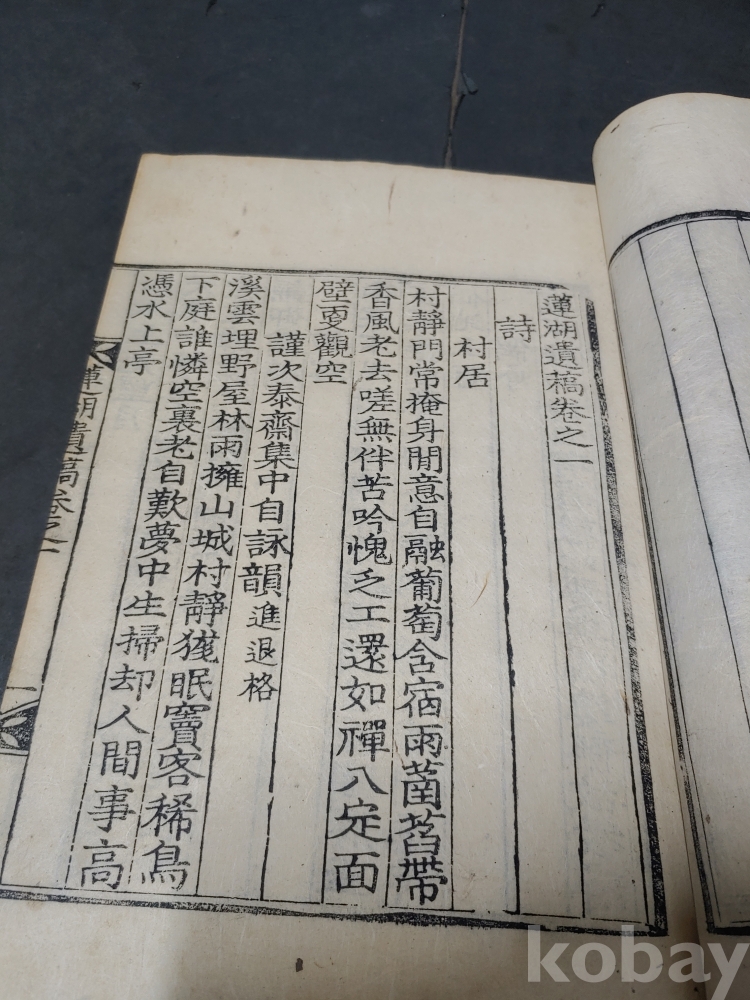 蓮湖遺稿卷之一
詩
村居
村靜門常掩身閒意自融葡萄含宿雨菡萏帶
香風老去嗟無伴苦吟愧乏工還如禪入定面
壁更觀空
謹次泰齋集中自詠韻進退格
溪雲埋野屋林雨擁山城村靜獚眠竇客稀鳥
下庭誰憐空裏老自歎夢中生掃却人間事高
憑水上亭
蓮湖遺稿卷之一
kobay